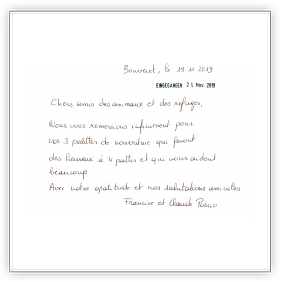 Bouveret, le 19 11 2019
EINGEGANGEN 21. Nov. 2019
Chers amis des animaux et des refuges,
Nous vous remercions infiniment pour
vos 3 palettes de nourriture qui feront
des heureux à 4 pattes et qui nous aident
beaucoup
Avec notre gratitude et nos salutations amicales
Francine et Claude